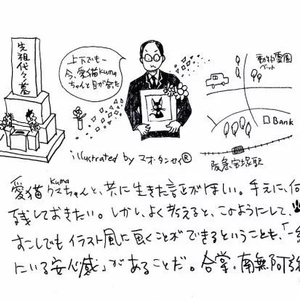 先祖代々墓
上下でも―
今、愛猫Kuma
ちゃんと目が合った
動物霊園
ペット
Bank
阪急宝塚駅
illustrated by マオ・タンセイ®
kuma
愛猫クマちゃんと、共に生きた証がほしい。手元に、何
残しておきたい。しかし、よく考えると、このようにして、
すこしでもイラスト風に画くことができるということも、「一
にいる安心感」があることだ。合掌。南無阿弥